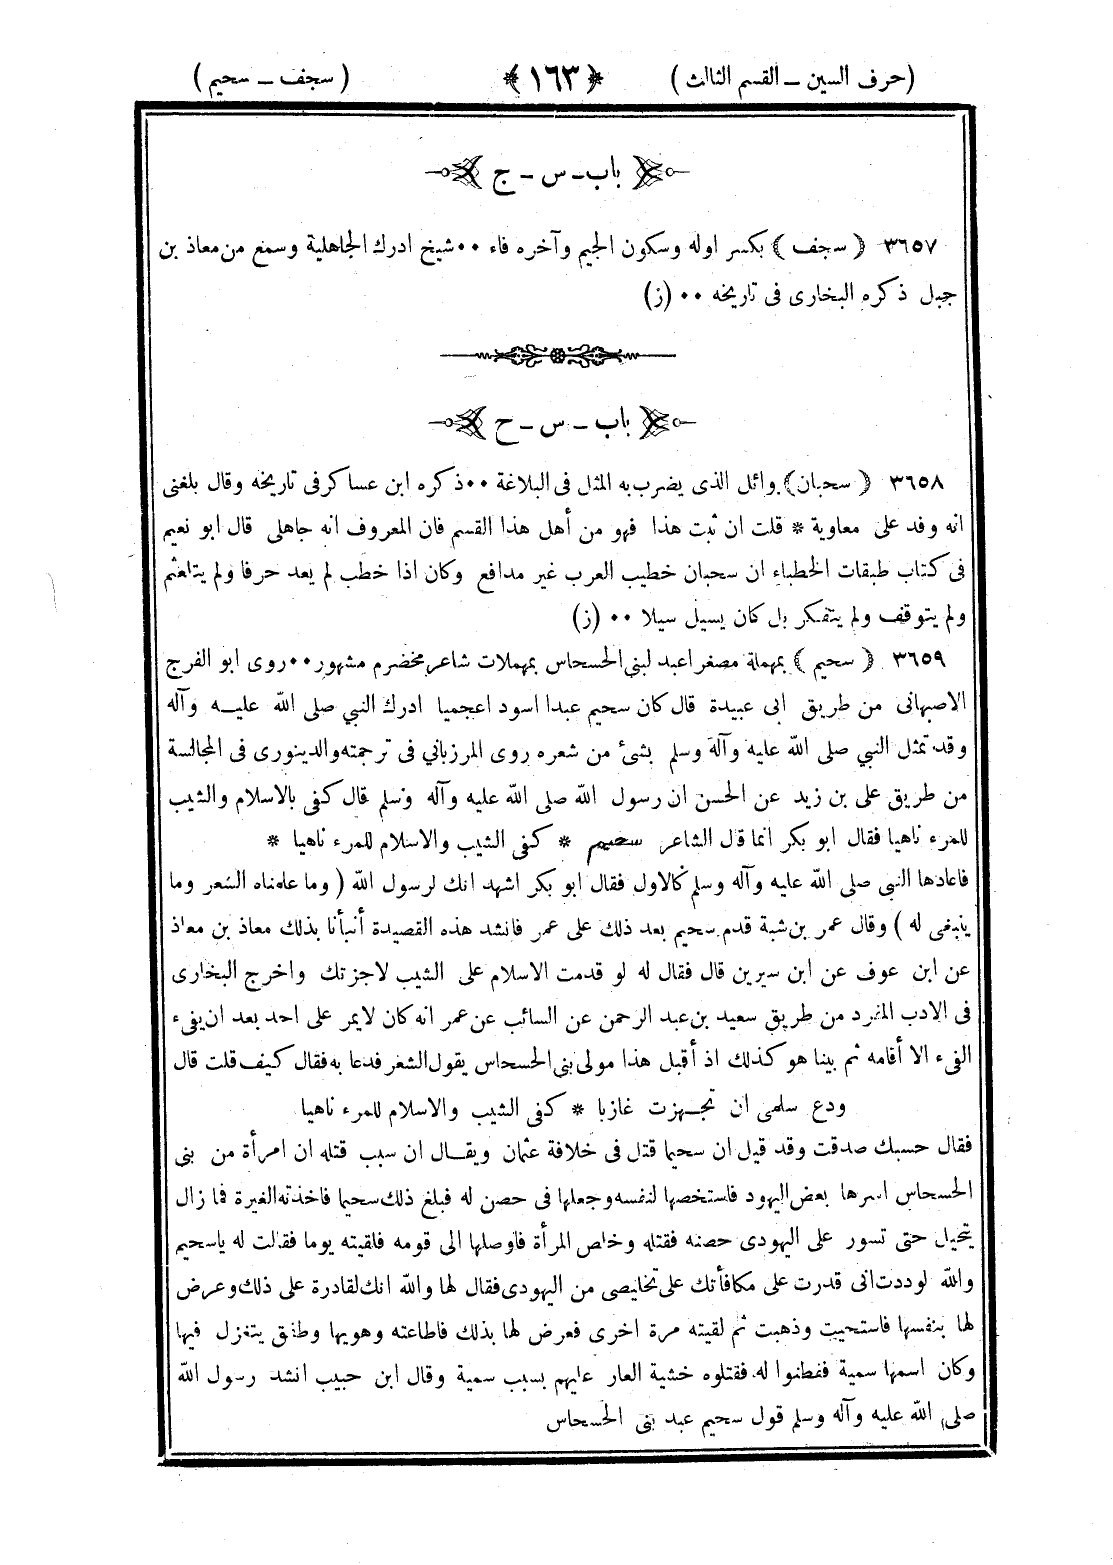 (حرف السين ــ القسم الثالث) ﴿١٦٣﴾ (سجف ــ سحيم)
باب ــ س ــ ج
٣٦٥٧ (سجف) بكسر اوله وسكون الجيم وآخره فاء ٠٠ شيخ ادرك الجاهلية وسمع من معاذ بن
جبل ذكره البخارى فى تاريخه ٠٠ (ز)
باب ــ س ــ ح
٣٦٥٨ (سحبان) وائل الذى يضرب به المثل فى البلاغة ٠٠ ذكره ابن عساكر فى تاريخه وقال بلغنى
انه وفد على معاوية * قلت ان ثبت هذا فهو من أهل هذا القسم فان المعروف انه جاهلى قال ابو نعيم
فى كتاب طبقات الخطباء ان سحبان خطيب العرب غير مدافع وكان اذا خطب لم يعد حرفا ولم يتلعثم
ولم يتوقف ولم يتفكر بل كان يسيل سيلا ٠٠ (ز)
٣٦٥٩ (سحيم) بمهملة مصغرا عبد لبنى الحسحاس بمهملات شاعر مخضرم مشهور ٠٠ روى ابو الفرج
الاصبهانى من طريق ابى عبيدة قال كان سحيم عبدا اسود اعجميا ادرك النبي صلى الله عليه وآله
وقد تمثل النبي صلى الله عليه وآله وسلم بشئ من شعره روى المرزباني فى ترجمته والدينورى فى المجالسة
من طريق على بن زيد عن الحسن ان رسول الله صلى الله عليه وآله وسلم قال كفى بالاسلام والشيب
للمرء ناهيا فقال ابو بكر انما قال الشاعر سحيم * كفى الشيب والاسلام للمرء ناهيا *
فاعادها النبى صلى الله عليه وآله وسلم كالاول فقال ابو بكر اشهد انك لرسول الله (وما علمناه الشعر وما
ينبغى له) وقال عمر بن شبة قدم سحيم بعد ذلك على عمر فانشد هذه القصيدة أنبأنا بذلك معاذ بن معاذ
عن ابن عوف عن ابن سيرين قال فقال له لو قدمت الاسلام على الشيب لاجزتك واخرج البخارى
فى الادب المفرد من طريق سعيد بن عبد الرحمن عن السائب عن عمر انه كان لايمر على احد بعد ان يفىء
الفىء الا أقامه ثم بينا هو كذلك اذ أقبل هذا مولى بنى الحسحاس يقول الشعر فدعا به فقال كيف قلت قال
ودع سلمى ان تجهزت غازيا * كفى الشيب والاسلام للمرء ناهيا
فقال حسبك صدقت وقد قيل ان سحيما قتل فى خلافة عثمان ويقال ان سبب قتله ان امرأة من بنى
الحسحاس اسرها بعض اليهود فاستخصها لنفسه وجعلها فى حصن له فبلغ ذلك سحيما فاخذته الغيرة فما زال
يتحيل حتى تسور على اليهودى حصنه فقتله وخلص المرأة فاوصلها الى قومه فلقيته يوما فقالت له ياسحيم
والله لوددت انى قدرت على مكافأتك على تخليصى من اليهودى فقال لها والله انك لقادرة على ذلك وعرض
لها بنفسها فاستحيت وذهبت ثم لقيته مرة اخرى فعرض لها بذلك فاطاعته وهويها وطفق يتغزل فيها
وكان اسمها سمية ففطنوا له فقتلوه خشية العار عليهم بسبب سمية وقال ابن حبيب انشد رسول الله
صلى الله عليه وآله وسلم قول سحيم عبد بنى الحسحاس